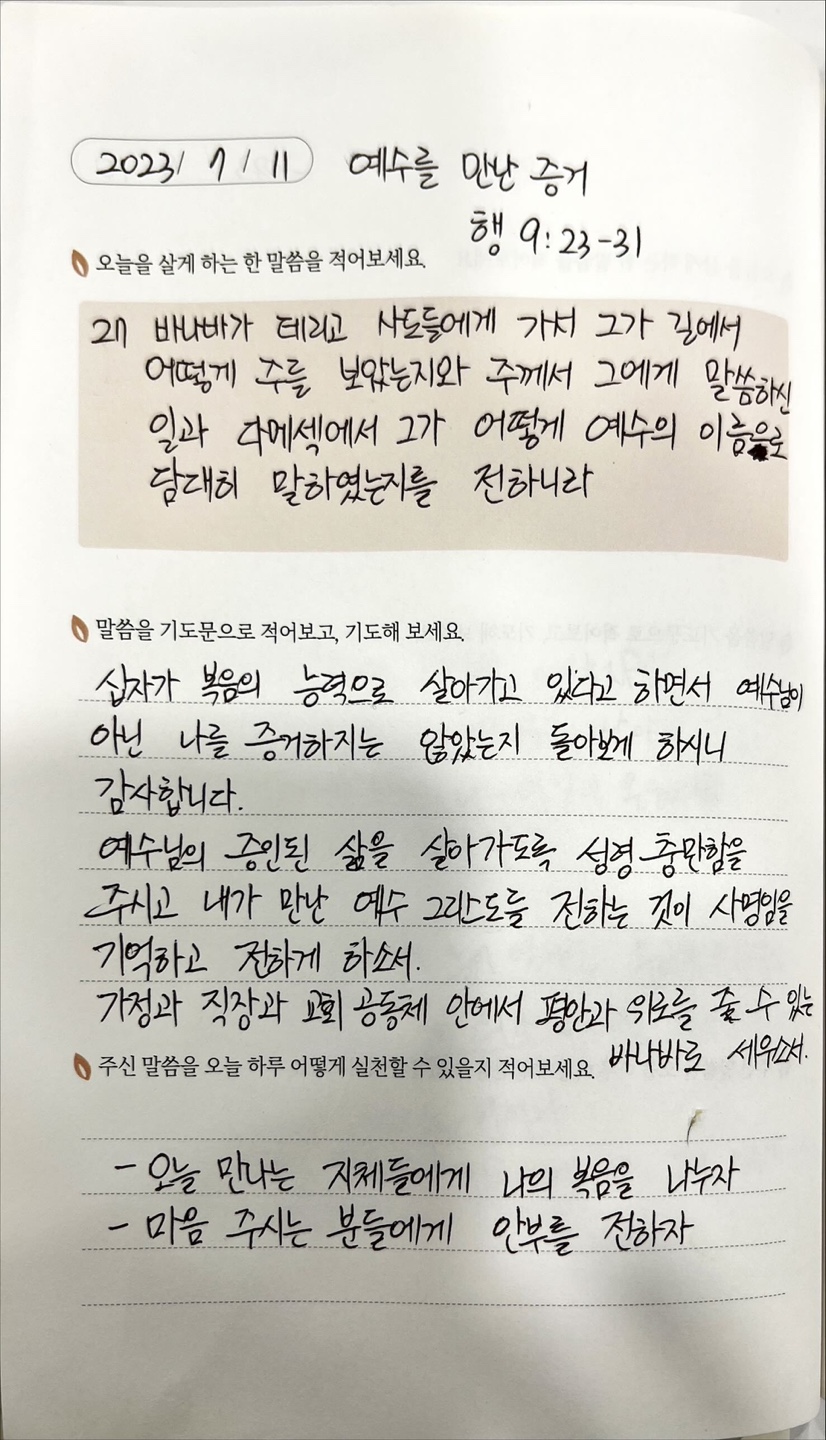 2023/ 7 / 11 예수를 만난 증거
행 9:23-31
오늘을 살게 하는 한 말씀을 적어보세요.
27 바나바가 데리고 사도들에게 가서 그가 길에서
어떻게 주를 보았는지와 주께서 그에게 말씀하신
일과 다메섹에서 그가 어떻게 예수의 이름으로
담대히 말하였는지를 전하니라
말씀을 기도문으로 적어보고, 기도해 보세요.
십자가 복음의 능력으로 살아가고 있다고 하면서 예수님이
아닌 나를 증거하지는 않았는지 돌아보게 하시니
감사합니다.
예수님의 증인된 삶을 살아가도록 성령 충만함을
주시고 내가 만난 예수 그리스도를 전하는 것이 사명임을
기억하고 전하게 하소서.
가정과 직장과 교회 공동체 안에서 평안과 위로를 줄 수 있는
바나바로 세우소서.
주신 말씀을 오늘 하루 어떻게 실천할 수 있을지 적어보세요.
- 오늘 만나는 지체들에게 나의 복음을 나누자
- 마음 주시는 분들에게 안부를 전하자